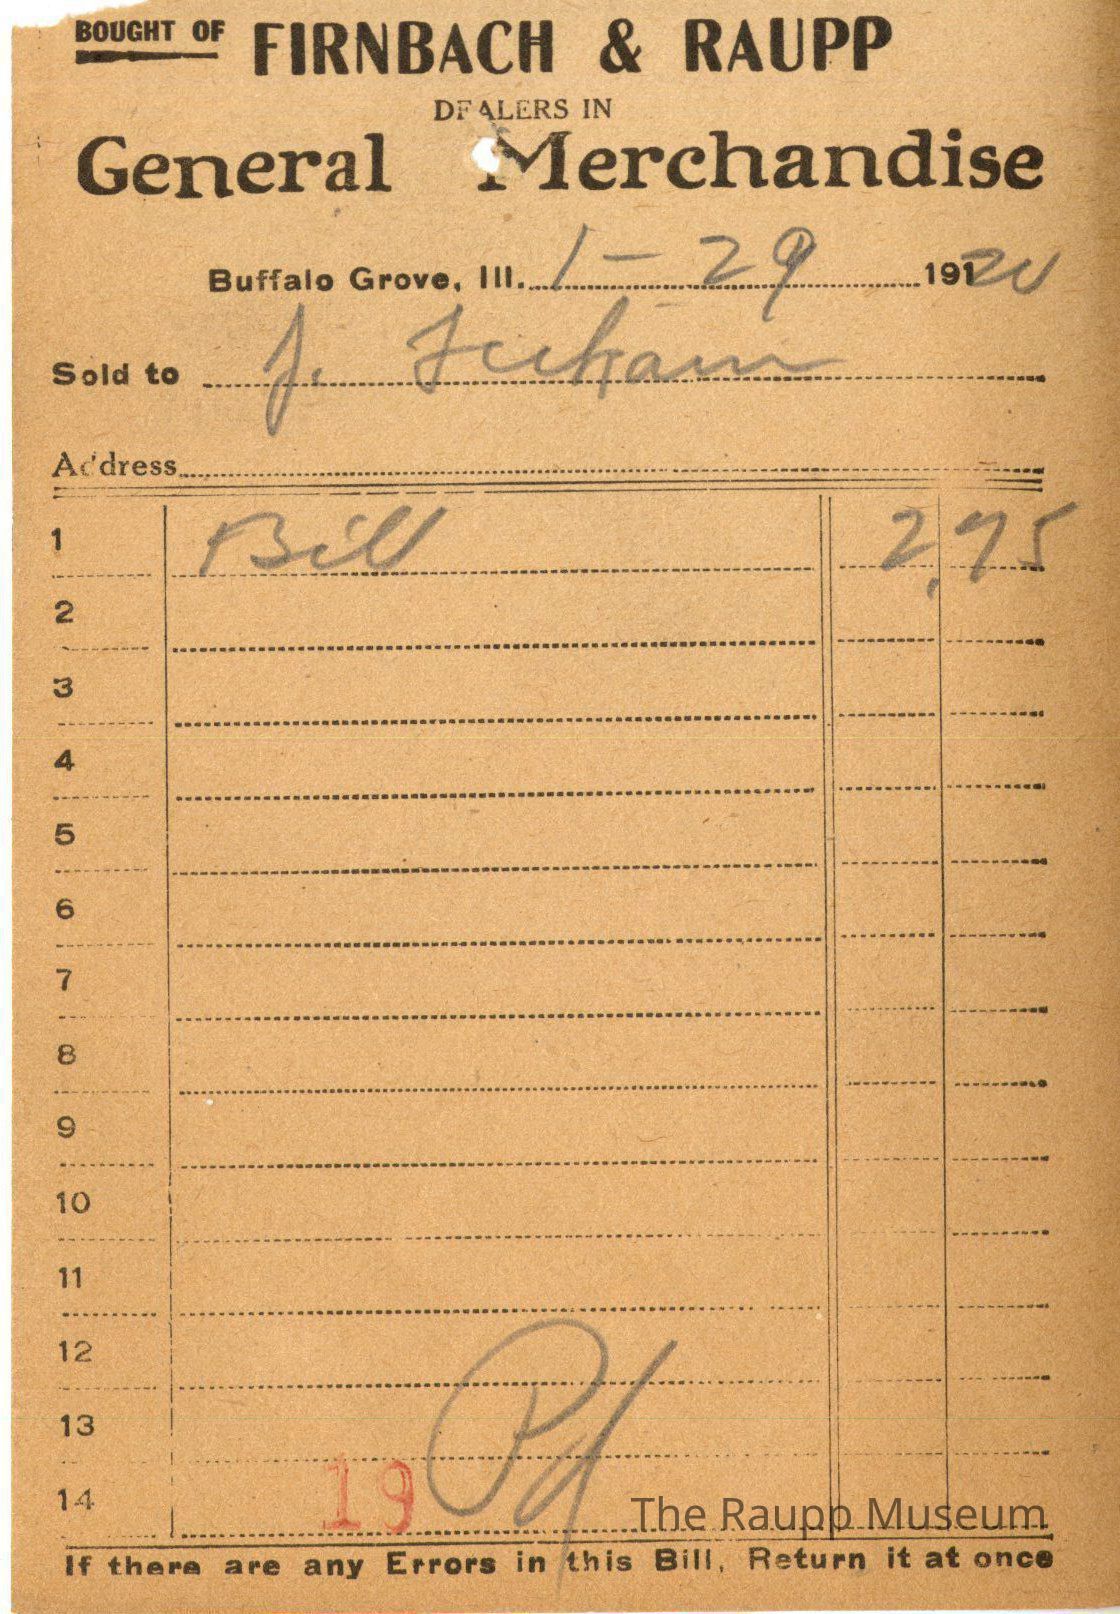 BOUGHT OF FIRNBACH & RAUPP
DEALERS IN
General Merchandise
Buffalo Grove, Ill. 1-29 1920
Sold to J.
Address
1 Bill 2,75
2
3
4
5
6
7
8
9
10
11
12
13
14
Pd
19
The Raupp Museum
If there are any Errors in this Bill, Return it at once